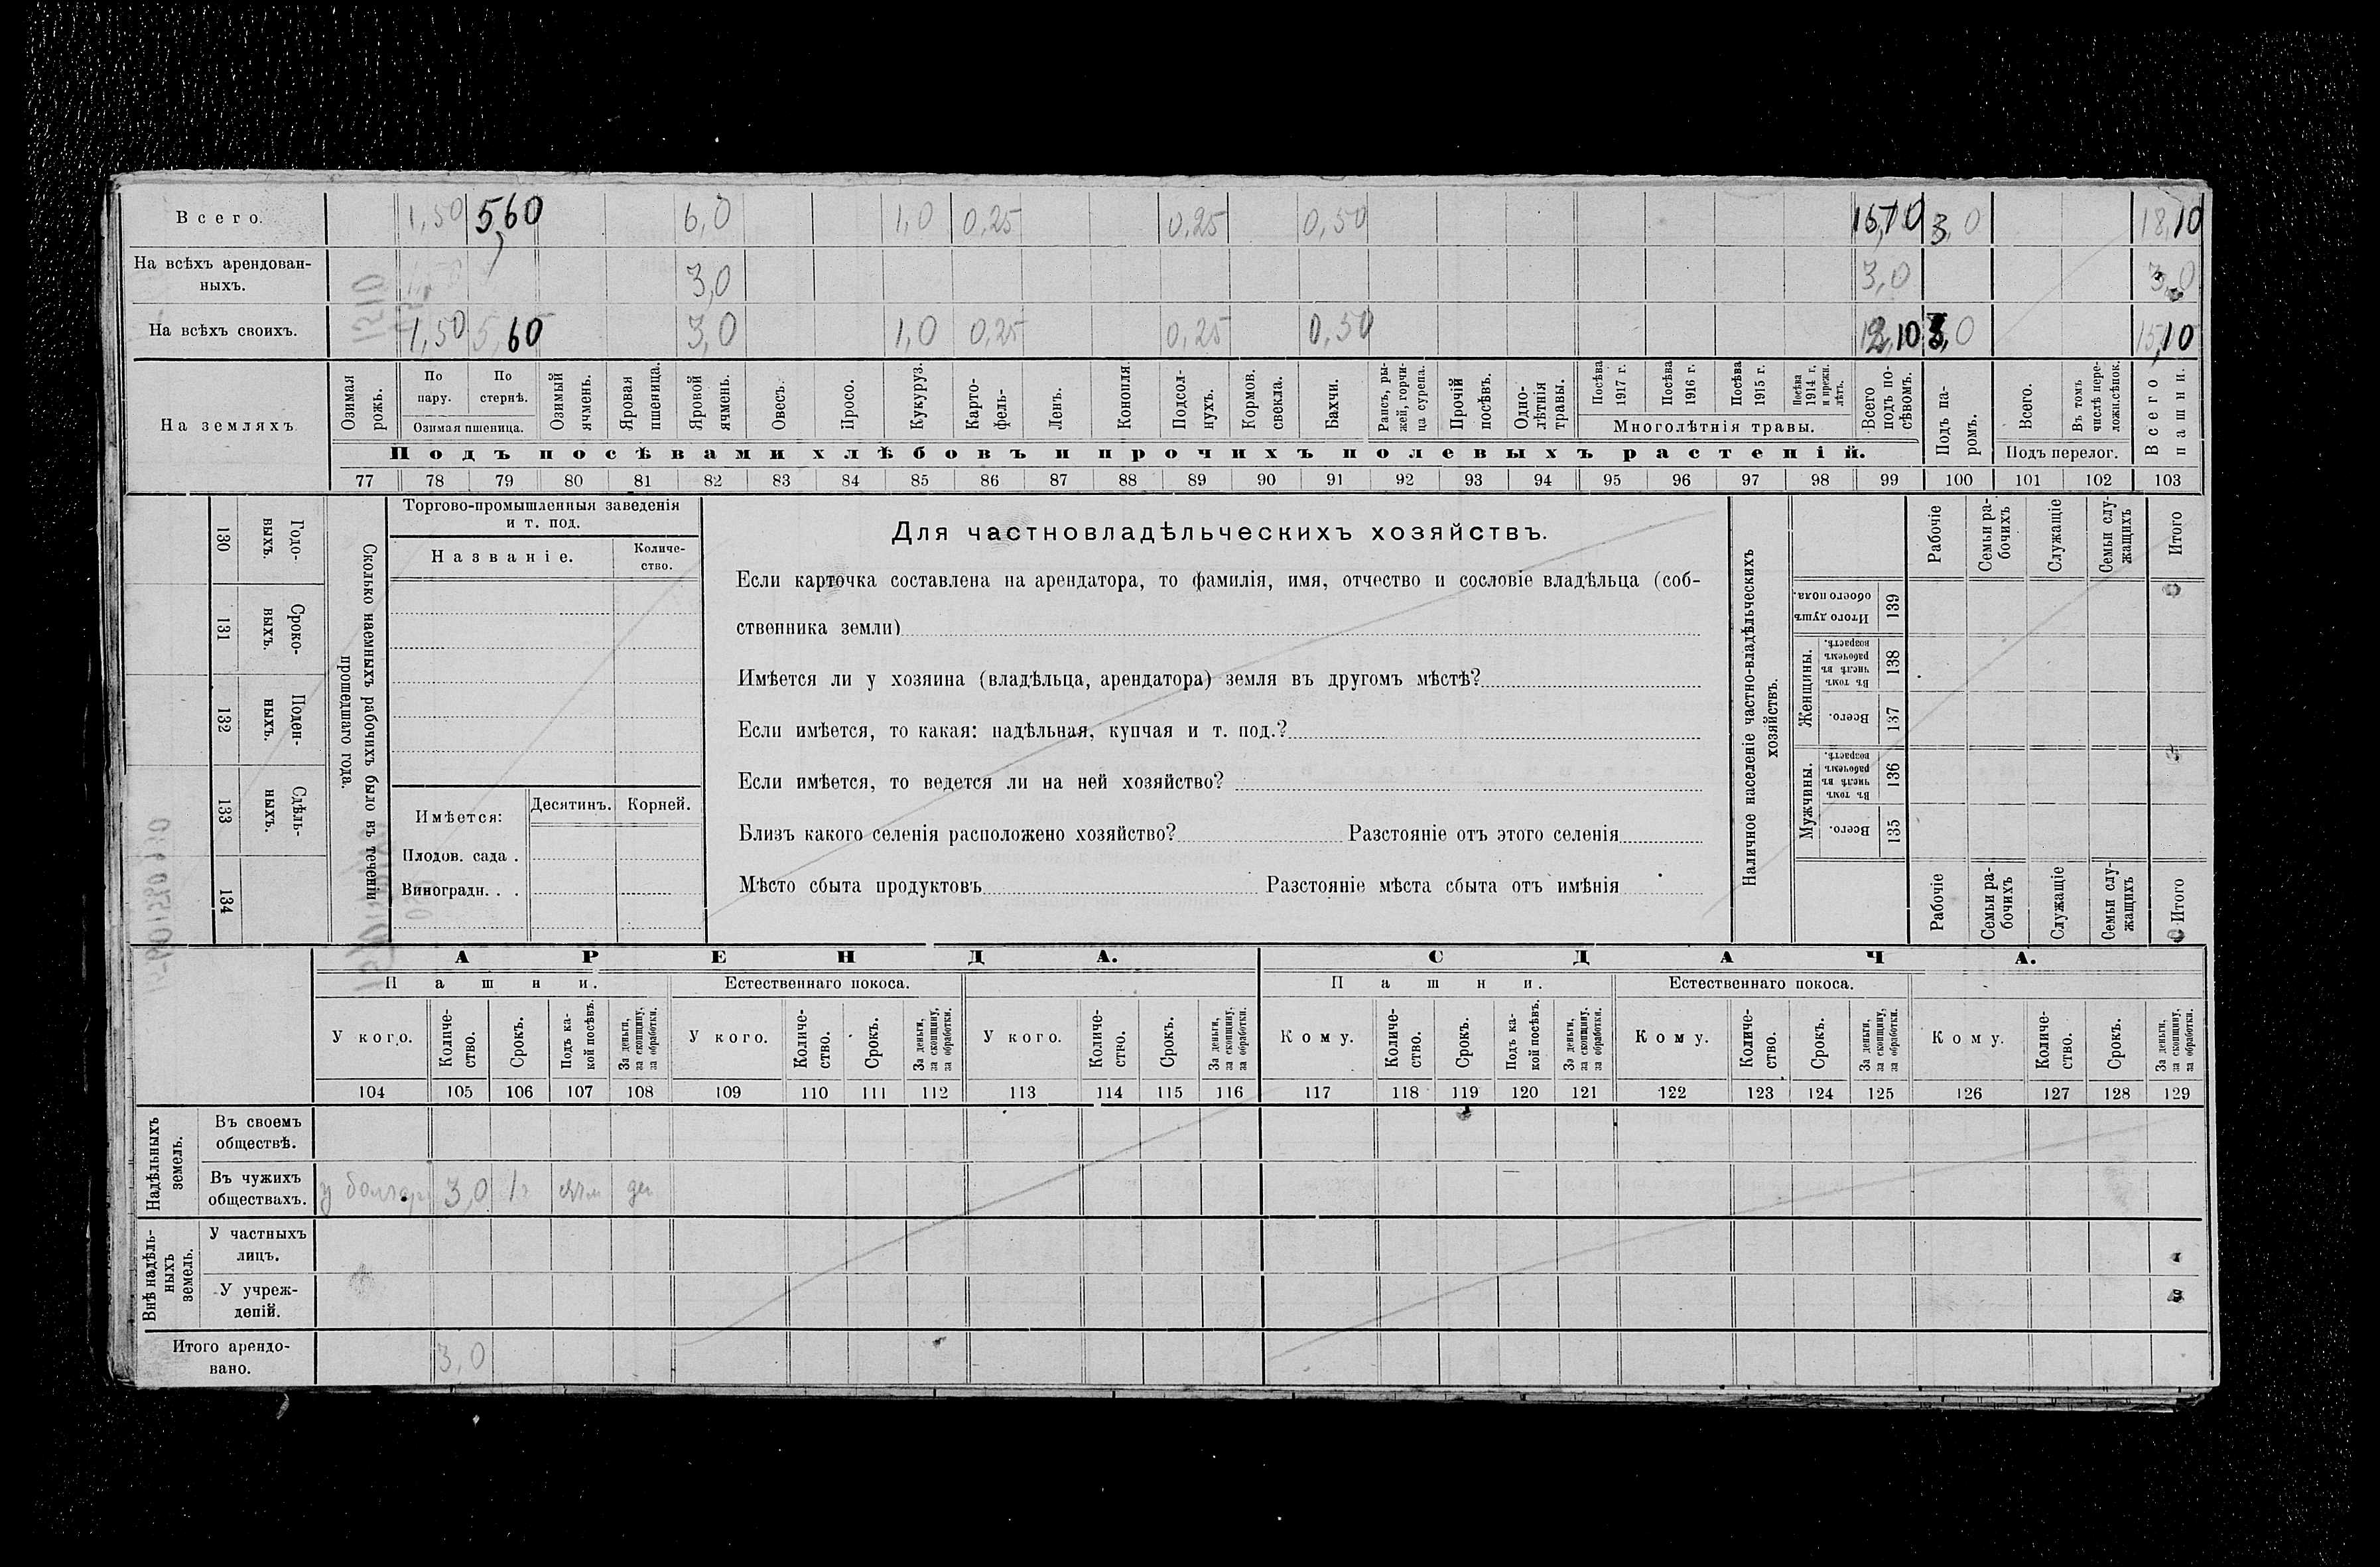 Всего. 1,50 5,60 6,0 1,0 0,25 0,25 0,50 15,10 3,0 18,10
На всѣхъ арендован-
ныхъ. 3,0 3,0 3,0
На всѣхъ своихъ. 1,50 5,60 3,0 1,0 0,25 0,25 0,50 12,10 3,0 15,10
На земляхъ
Озимая рожь.
По пару.
По стернѣ.
Озимая пшеница.
Озимый ячмень.
Яровая пшеница.
Яровой ячмень.
Овесъ.
Просо.
Кукуруз.
Карто-
фель-
Ленъ.
Конопля.
Подсол-
нухъ.
Кормов.
свекла.
Бахчи.
Рапсъ, ры-
жей, горчи-
ца сурепа.
Прочій
посѣвъ.
Одно-
лѣтнія
травы.
Посѣва
1917 г.
Посѣва
1916 г.
Посѣва
1915 г.
Посѣва
1914 г.
и прежн.
лѣтъ.
Многолѣтнія травы.
Всего
подъ по-
сѣвомъ.
Подъ па-
ромъ.
Всего.
Въ томъ
числѣ пере-
ложн.сѣнок.
Подъ перелог.
Всего
пашни.
Подъ посѣвами хлѣбовъ и прочихъ полевыхъ растеній.
77 78 79 80 81 82 83 84 85 86 87 88 89 90 91 92 93 94 95 96 97 98 99 100 101 102 103
130 Годо-
выхъ.
131 Сроко-
выхъ.
132 Поден-
ныхъ.
133 Сдѣль-
ныхъ.
134
Сколько наемныхъ рабочихъ было въ теченіи
прошедшаго года.
Торгово-промышленныя заведенія
и т. под.
Названіе.
Количе-
ство.
Имѣется:
Десятинъ. Корней.
Плодов. сада .
Виноградн. . .
Для частновладѣльческихъ хозяйствъ.
Если карточка составлена на арендатора, то фамилія, имя, отчество и сословіе владѣльца (соб-
ственника земли)
Имѣется ли у хозяина (владѣльца, арендатора) земля въ другомъ мѣстѣ?
Если имѣется, то какая: надѣльная, купчая и т. под.?
Если имѣется, то ведется ли на ней хозяйство?
Близъ какого селенія расположено хозяйство? Разстояніе отъ этого селенія
Мѣсто сбыта продуктовъ Разстояніе мѣста сбыта отъ имѣнія
Наличное населеніе частно-владѣльческихъ
хозяйствъ.
Рабочіе
Семьи ра-
бочихъ
Служащіе
Семьи слу-
жащихъ
Итого
Итого душъ
обоего пола.
139
Женщины.
Въ томъ
числѣ въ
рабочемъ
возрастѣ.
138
Всего.
137
Мужчины.
Въ томъ
числѣ въ
рабочемъ
возрастѣ.
136
Всего.
135
Рабочіе
Семьи ра-
бочихъ
Служащіе
Семьи слу-
жащихъ
Итого
АРЕНДА. СДАЧА.
Пашни. Естественнаго покоса. Пашни. Естественнаго покоса.
У кого.
Количе-
ство.
Срокъ.
Подъ ка-
кой посѣвъ.
За деньги,
за скопщину,
за обработки.
У кого.
Количе-
ство.
Срокъ.
За деньги,
за скопщину,
за обработки.
У кого.
Количе-
ство.
Срокъ.
За деньги,
за скопщину,
за обработки.
Кому.
Количе-
ство.
Срокъ.
Подъ ка-
кой посѣвъ.
За деньги,
за скопщину,
за обработки.
Кому.
Количе-
ство.
Срокъ.
За деньги,
за скопщину,
за обработки.
Кому.
Количе-
ство.
Срокъ.
За деньги,
за скопщину,
за обработки.
104 105 106 107 108 109 110 111 112 113 114 115 116 117 118 119 120 121 122 123 124 125 126 127 128 129
Надѣльныхъ
земель.
Въ своемъ
обществѣ.
Въ чужихъ
обществахъ. у болгар 3,0 1г ячм де
Внѣ надѣль-
ныхъ
земель.
У частныхъ
лицъ.
У учреж-
деній.
Итого арендо-
вано. 3,0